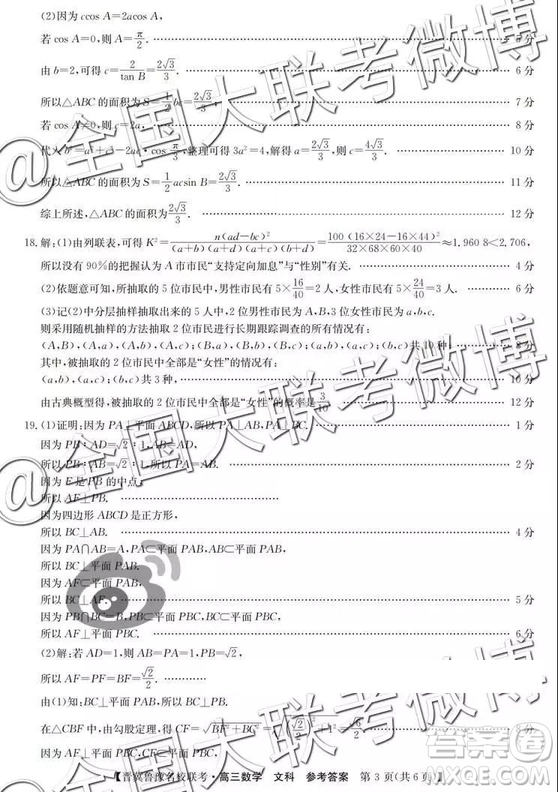 (2)因为 ccos A=2acos A,
若 cos A=0,则 A=π/2. 5 分
由 b=2,可得 c=2/tan B=2√3/3. 6 分
所以△ABC 的面积为 S=1/2 bc=2√3/3. 7 分
若 cos A≠0,则 c=2a, 8 分
代入 b²=a²+c²-2ac·cos π/3,整理可得 3a²=4,解得 a=2√3/3,则 c=4√3/3. 10 分
所以△ABC 的面积为 S=1/2 acsin B=2√3/3. 11 分
综上所述,△ABC 的面积为 2√3/3. 12 分
18.解:(1)由列联表,可得 K²=n(ad-bc)²/(a+b)(a+d)(a+c)(b+d)=100(16×24-16×44)²/32×68×60×40≈1.960 8<2.706,
所以没有 90%的把握认为 A 市市民“支持定向加息”与“性别”有关. 4 分
(2)依题意可知,所抽取的 5 位市民中,男性市民有 5×16/40=2 人,女性市民有 5×24/40=3 人. 6 分
(3)记(2)中分层抽样抽取出来的 5 人中,2 位男性市民为 A,B,3 位女性市民为 a,b,c.
则采用随机抽样的方法抽取 2 位市民进行长期跟踪调查的所有情况有:
(A,B),(A,a),(A,b),(A,c),(B,a),(B,b),(B,c),(a,b),(a,c),(b,c)共 10 种, 8 分
其中,被抽取的 2 位市民中全部是“女性”的情况有:
(a,b),(a,c),(b,c)共 3 种, 10 分
由古典概型得,被抽取的 2 位市民中全部是“女性”的概率是 3/10. 12 分
19.(1)证明:因为 PA⊥平面 ABCD,所以 PA⊥AB,PA⊥BC. 1 分
因为 PB:AD=√2:1,
所以 PB:AB=√2:1,所以 PA=AB. 2 分
因为 E 是 PB 的中点,
所以 AF⊥PB.
因为四边形 ABCD 是正方形,
所以 BC⊥AB. 4 分
因为 PA∩AB=A,PA⊂平面 PAB,AB⊂平面 PAB,
所以 BC⊥平面 PAB.
因为 AF⊂平面 PAB,
所以 BC⊥AF. 5 分
因为 PB∩BC=B,PB⊂平面 PBC,BC⊂平面 PBC,
所以 AF⊥平面 PBC. 6 分
(2)解:若 AD=1,则 AB=PA=1,PB=√2,
所以 AF=PF=BF=√2/2.
由(1)知:BC⊥平面 PAB,所以 BC⊥PB.
在△CBF 中,由勾股定理,得 CF=√BF²+BC²=√(√2/2)²+1²=√6/2. 8 分
因为 AF⊥平面 PBC,CF⊂平面 PBC,
【晋冀鲁豫名校联考·高三数学 文科 参考答案 第 3 页(共 6 页)】
@全国大联考微博
@全国大联考微博